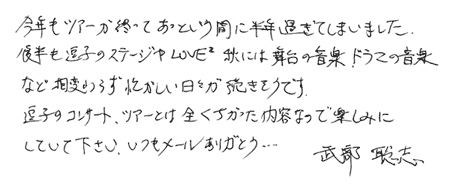 今年もツアーが終ってあっという間に半年過ぎてしまいました.
後半も逗子のステージやLOVE² 秋には舞台の音楽、ドラマの音楽
など相変わらず忙がしい日々が続きそうです.
逗子のコンサート、ツアーとは全くちがった内容なので楽しみに
していて下さい. いつもメールありがとう…
武部 聡志